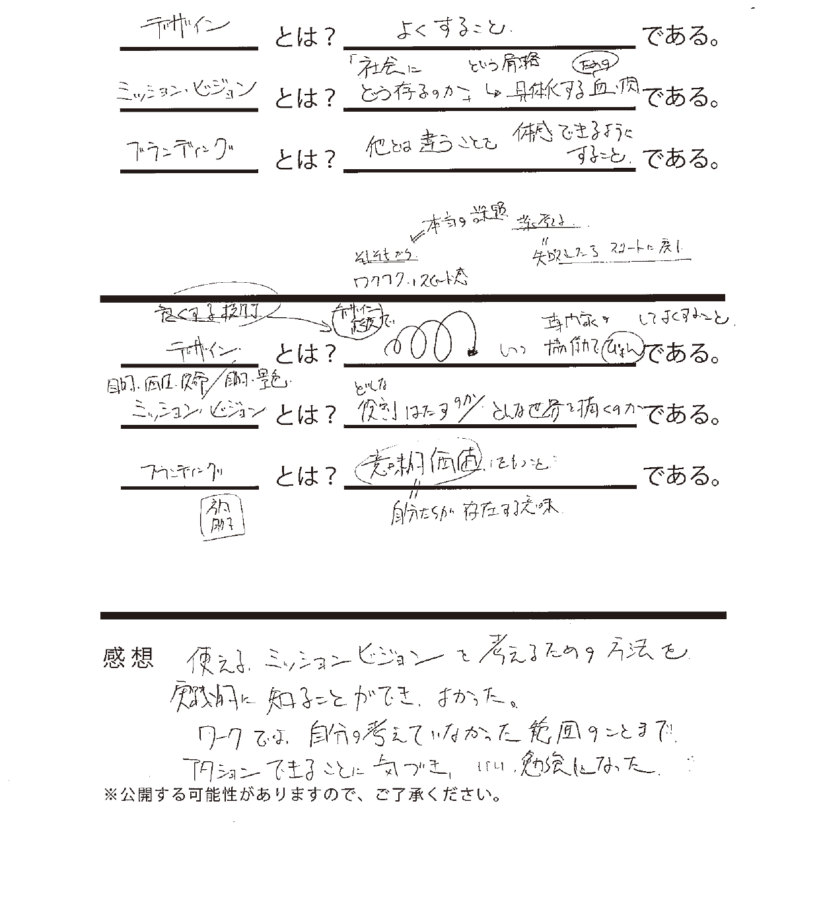 デザイン とは？ よくすること. である。
「社会に という骨格 ための
ミッション・ビジョン とは？ どう存るのか」↳具体化する血・肉 である。
ブランディング とは？ 他とは違うことを 体感できるように
すること. である。
本当の課題
そもそもから
ワクワク、スピード感
失敗したら スタートに戻し
良くする技術 デザイン
専門家の してよくすること.
デザイン とは？ で いつ 協働で である。
目的・価値・使命／目的・景色.
どんな
ミッション・ビジョン とは？ 役割はたすのか／どんな世界を描くのか である。
ブランディング とは？ 意味的価値 にもいと である。
自分たちが存在する意味
感想 使える、ミッションビジョンを考えるための方法を
実践的に知ることができ、よかった。
ワークでは、自分の考えていなかった範囲のことまで
アクションできることに気づき、いい勉強になった.
※公開する可能性がありますので、ご了承ください。